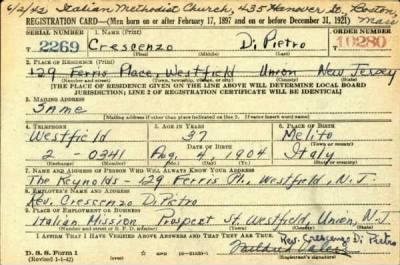 6/2/42 Italian Methodist Church, 435 Hanover St., Boston, Mass
REGISTRATION CARD—(Men born on or after February 17, 1897 and on or before December 31, 1921)
SERIAL NUMBER 1. NAME (Print) ORDER NUMBER
T 2269 Crescenzo Di Pietro 10280
(First) (Middle) (Last)
2. PLACE OF RESIDENCE (Print)
129 Ferris Place, Westfield Union New Jersey
(Number and street) (Town, township, village, or city) (County) (State)
[THE PLACE OF RESIDENCE GIVEN ON THE LINE ABOVE WILL DETERMINE LOCAL BOARD
JURISDICTION; LINE 2 OF REGISTRATION CERTIFICATE WILL BE IDENTICAL]
3. MAILING ADDRESS
Same
[Mailing address if other than place indicated on line 2. If same insert word same]
4. TELEPHONE 5. AGE IN YEARS 6. PLACE OF BIRTH
Westfield 37 Melito
DATE OF BIRTH (Town or county)
2-0341 Aug. 4, 1904 Italy
(Exchange) (Number) (Mo.) (Day) (Yr.) (State or country)
7. NAME AND ADDRESS OF PERSON WHO WILL ALWAYS KNOW YOUR ADDRESS
The Reynolds 129 Ferris Pl., Westfield, N.J.
8. EMPLOYER'S NAME AND ADDRESS
Rev. Crescenzo DiPietro
9. PLACE OF EMPLOYMENT OR BUSINESS
Italian Mission Prospect St. Westfield, Union, N.J.
(Number and street or R. F. D. number) (Town) (County) (State)
I AFFIRM THAT I HAVE VERIFIED ABOVE ANSWERS AND THAT THEY ARE TRUE.
Rev. Crescenzo Di Pietro
D. S. S. Form 1
(Revised 1-1-42) (over)